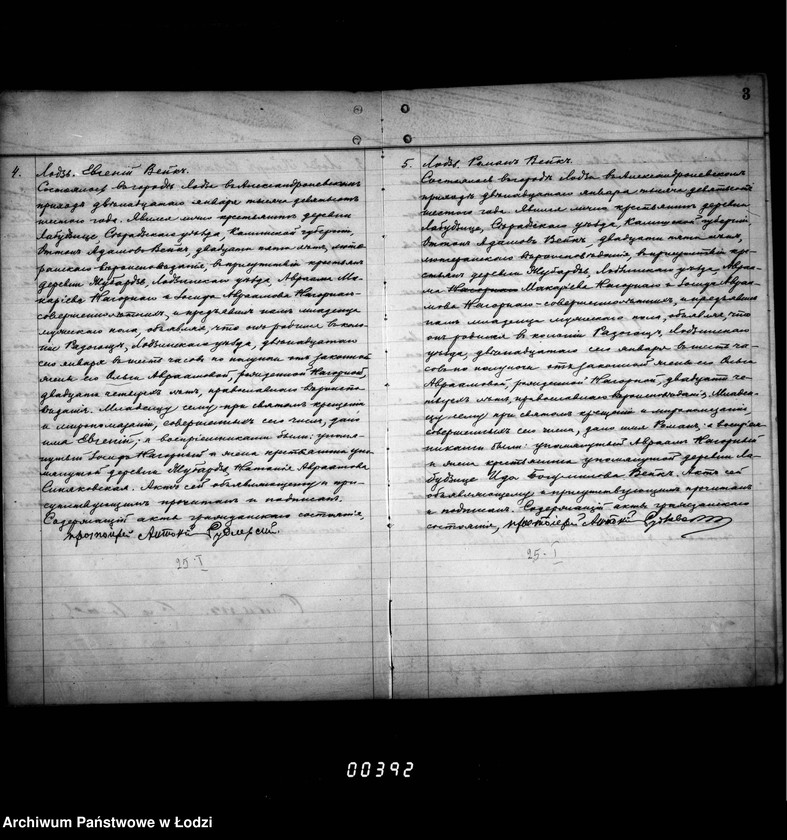 3
4. Лодзь. Евгеній Вейкъ.
Состоялось въ городѣ Лодзи въ Александроневскомъ
приходѣ двѣнадцатаго января тысяча девятьсотъ
шестого года. Явился лично крестьянинъ деревни
Сѣрадзскаго уѣзда, Калишской губерніи,
Адамовъ Вейкъ, двадцати пяти лѣтъ, люте-
ранскаго вѣроисповѣданія, въ присутствіи крестьянъ
деревни Жубардзь, Лодзинскаго уѣзда, Авраама Ма-
каріева Нагорнаго и Іосифа Авраамова Нагорнаго
совершеннолѣтнихъ, и предъявилъ намъ младенца
мужескаго пола, объявляя, что онъ родился въ коло-
ніи Радогощъ, Лодзинскаго уѣзда, двѣнадцатаго
сего января въ шесть часовъ по полуночи отъ законной
жены его Ольги Авраамовой, рожденной Нагорной,
двадцати четырехъ лѣтъ, православнаго вѣроиспо-
вѣданія. Младенцу сему при святомъ крещеніи
и миропомазаніи, совершенныхъ сего числа, дано
имя Евгеній; а воспріемниками были: упомя-
нутый Іосифъ Нагорный и жена крестьянина упо-
мянутой деревни Жубардзь, Наталія Авраамова
Синяковская. Актъ сей объявляющему и при-
сутствующимъ прочитанъ и подписанъ.
Содержащій акты гражданскаго состоянія,
протоіерей Антоній Рудлевскій.
25 I
5. Лодзь. Романъ Вейкъ.
Состоялось въ городѣ Лодзи въ Александроневскомъ
приходѣ двѣнадцатаго января тысяча девятьсотъ
шестого года. Явился лично крестьянинъ деревни
Лабудзице, Сѣрадзскаго уѣзда, Калишской губерніи,
Адамовъ Вейкъ, двадцати пяти лѣтъ,
лютеранскаго вѣроисповѣданія, въ присутствіи кре-
стьянъ деревни Жубардзь, Лодзинскаго уѣзда, Авраа-
ма Макаріева Нагорнаго и Іосифа Авраа-
мова Нагорнаго совершеннолѣтнихъ, и предъявилъ
намъ младенца мужескаго пола, объявляя, что
онъ родился въ колоніи Радогощъ, Лодзинскаго
уѣзда, двѣнадцатаго сего января въ шесть ча-
совъ по полуночи отъ законной жены его Ольги
Авраамовой, рожденной Нагорной, двадцати че-
тырехъ лѣтъ, православнаго вѣроисповѣданія. Младен-
цу сему при святомъ крещеніи и миропомазаніи,
совершенныхъ сего числа, дано имя Романъ; а воспріем-
никами были: упомянутый Авраамъ Нагорный
и жена крестьянина упомянутой деревни Ла-
будзице Ида Богумилова Вейкъ. Актъ сей
объявляющему и присутствующимъ прочитанъ
и подписанъ. Содержащій акты гражданскаго
состоянія, протоіерей Антоній
25 I
00392
Archiwum Państwowe w Łodzi